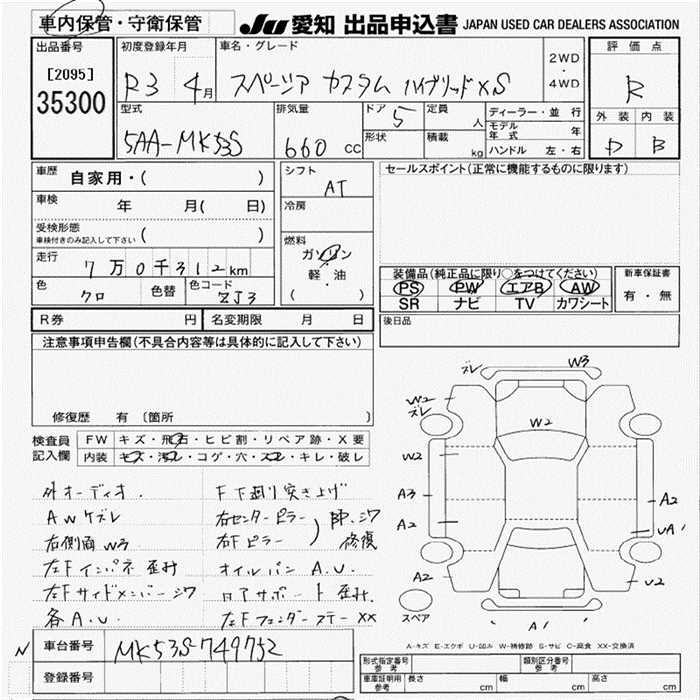 車内保管・守衛保管
JU 愛知 出品申込書 JAPAN USED CAR DEALERS ASSOCIATION
出品番号
[2095]
35300
初度登録年月
R3 4月
車名・グレード
スペーシア カスタム ハイブリッドXS
2WD
・
4WD
評価点
R
外装 内装
D B
型式
5AA-MK53S
排気量
660 cc
ドア 5
形状
定員 人
積載 kg
ディーラー・並行
モデル年式 年
ハンドル 左・右
車歴 自家用・( )
車検 年 月( 日)
受検形態
車検付きのみ記入して下さい ( )
走行 7万0千312km
色 クロ 色替
色コード ZJ3
シフト AT
冷房
燃料
ガソリン
軽・油
( )
セールスポイント(正常に機能するものに限ります)
装備品(純正品に限り○をつけてください)
PS PW エアB AW
SR ナビ TV カワシート
新車保証書
有・無
R券 円
名変期限 月 日
後日品
注意事項申告欄(不具合内容等は具体的に記入して下さい)
修復歴 有 〔箇所 〕
検査員記入欄
FW キズ・飛石・ヒビ割・リペア跡・X要
内装 キズ・汚レ・コゲ・穴・スレ・キレ・破レ
外オーディオ.
AWケズレ
右側面W3
左Fインパネ歪み
左Fサイドメンバーシワ
各A.U
F下廻り突き上げ
右センターピラー
右Fピラー
修復
オイルパンA.U.
ロアサポート歪み.
左Fフェンダーステー XX
ズレ W3
W2
ズレ
W2
W2
A3
A2
A2
A2
UA1
U2
A1
スペア
A-キズ E-エクボ U-凹み W-補修跡 S-サビ C-腐食 XX-交換済
N
車台番号 MK53S-749752
登録番号
形式指定番号 参考
類別区分番号 参考
車庫証明用 参考
長さ cm
幅 cm
高さ cm